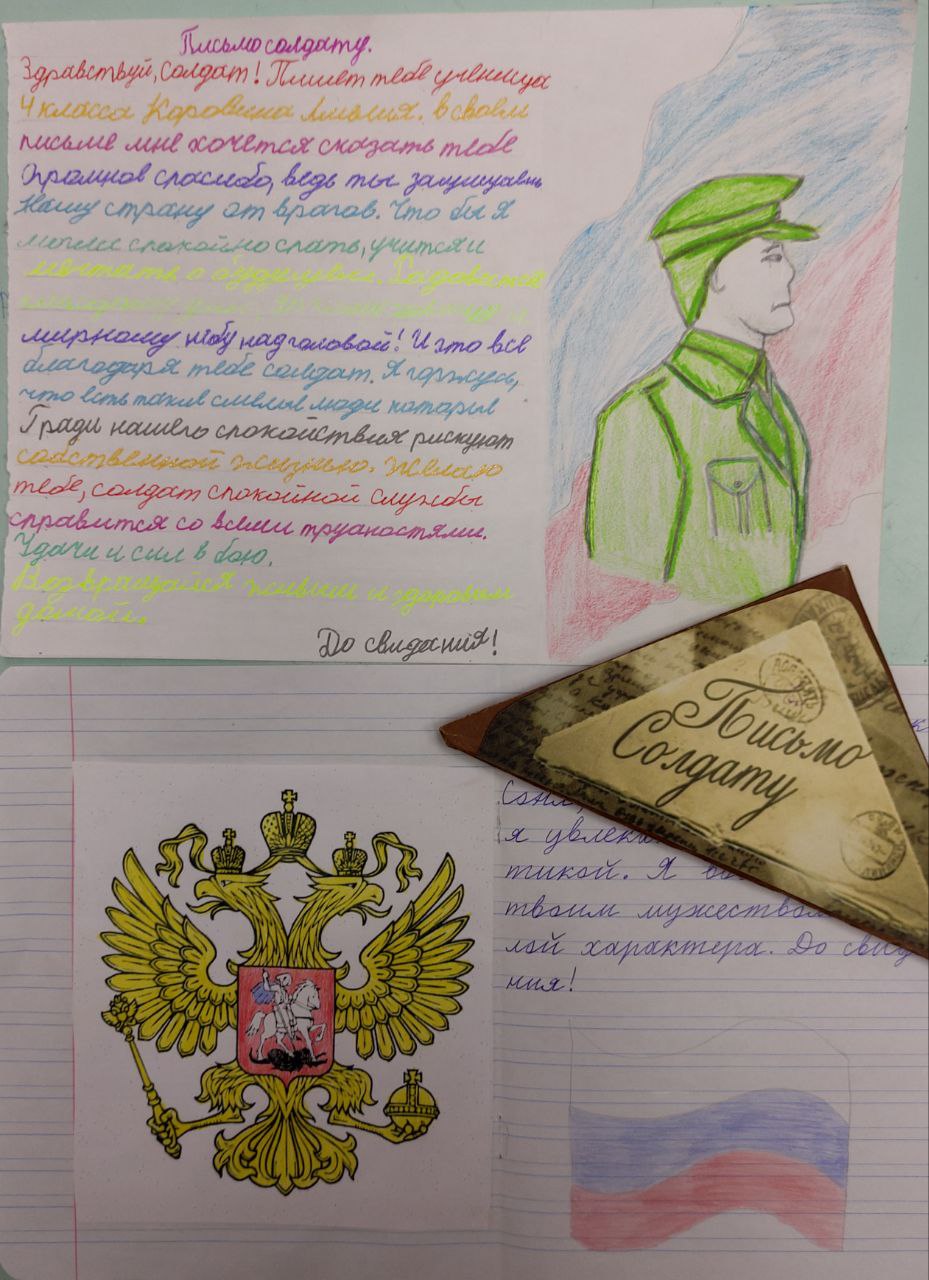 Письмо солдату.
Здравствуй, солдат! Пишет тебе ученица
4 класса Коровина Амелия. В своем
письме мне хочется сказать тебе
огромное спасибо, ведь ты защищаешь
нашу страну от врагов. Что бы я
могла спокойно спать, учится и
мечтать о будущем. Радоваться
каждому дню,
мирному небу над головой! И это все
благодаря тебе солдат. Я горжусь,
что есть такие смелые люди которые
Гради нашего спокойствия рискуют
собственной жизнью. Желаю
тебе, солдат спокойной службы
справится со всеми трудностями.
Удачи и сил в бою.
Возвращайся живым и здоровым
домой.
До свидания!
Письмо
Солдату
я увлек
тикой. Я
твоим мужеством
лой характера. До свид
ния!